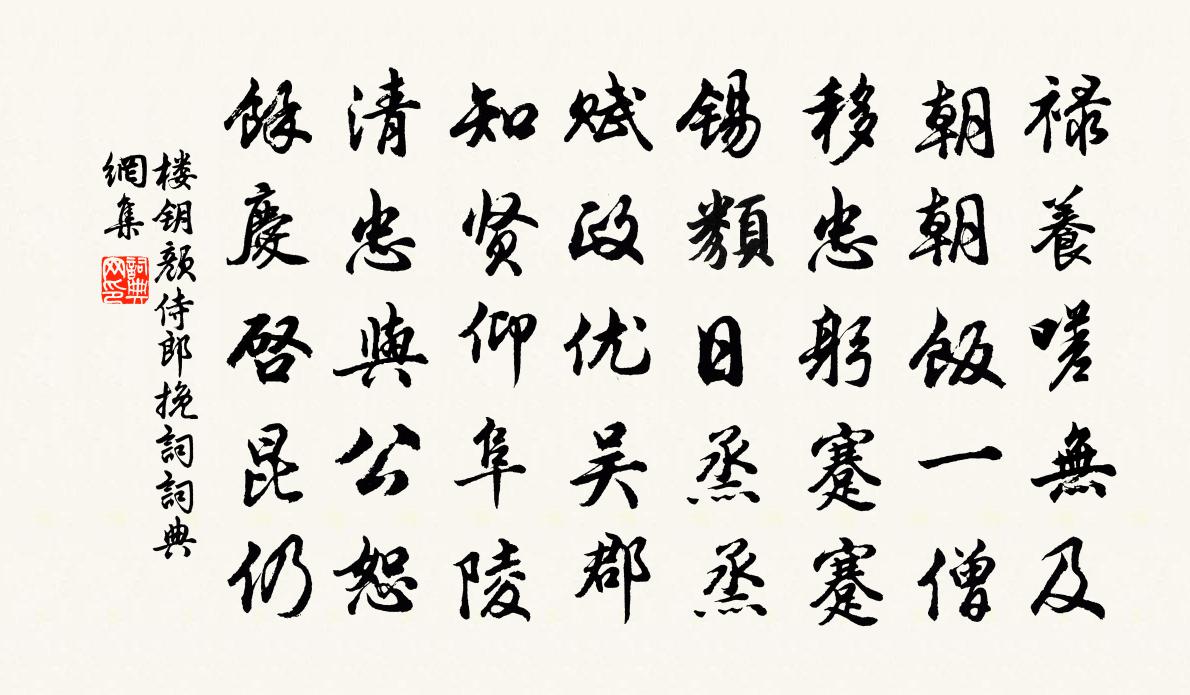 禄養嗟無及
朝朝飯一僧
移忠躬蹇蹇
锡類日烝烝
赋政优吴郡
知贤仰阜陵
清忠與公恕
餘慶啓昆仍
楼钥颜侍郎挽詞詞典
網集
詞典
网印